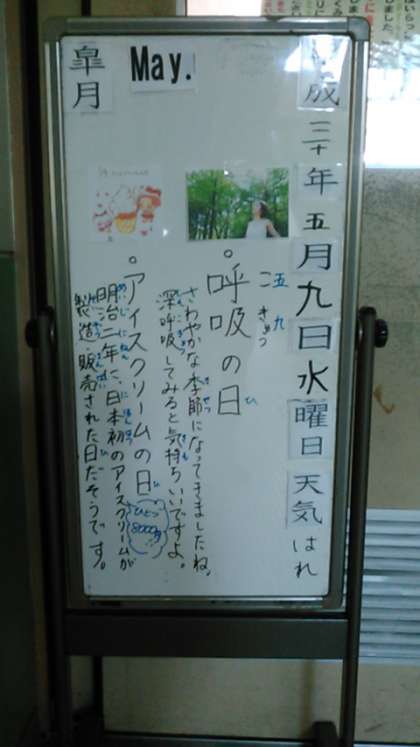 成三十年五月九日水曜日天気はれ
May.
皐月
五 九
こ きゅう
。呼吸の日
さわやかな季節になってきましたね。
深呼吸してみると気持ちいいですよ。
。アイスクリームの日
ひとつ
8000円
明治二年に、日本初のアイスクリームが
製造・販売された日だそうです。